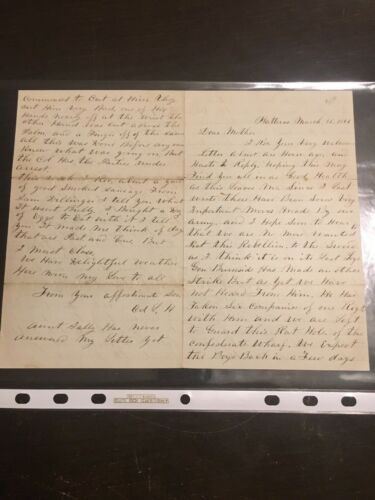 Commenced to Cut at Him they
Cut Him Very Bad one of His
Hands Nearly off at the Wrist the
other Hand was Cut across the
Palm, and a finger off of the same
all this was Done Before any one
Knew what was going on. But
the Col Has the Parties Under
arrest
This week I Rec, about a yard
of good Smoked Sausage from
Sam I tell you What
it went Bully. I Bought a Doz
of Eggs to Eat with it I tell
you it made Me think of days
that are Past and Gone But
I Must Close
We Have Delightful weather
Here Now My Love to all
From your affectionate Son
Ed S. H
Aunt Sally Has Never
Answered My Letter yet
Hatteras March 1862
Dear Mother
I Rec your Very Welcome
Letter about an Hour ago, and
Haste to Reply Hoping this May
Find you all in as Good Health
as this Leaves Me Since I Last
wrote there Has Been Some Very
Important Moves Made By our
army. and I Hope Soon to Hear
that We are No More wanted
But this Rebellion to the
as I think it is on its Last Legs
Gen Burnside Has Made an other
Strike But as yet We Have
not Heard From Him. He Has
taken Six Companies of our Regt
with Him and we are Left
to Guard this Rat Hole of the
Confederate Wharf. We Expect
the Boys Back in a few days